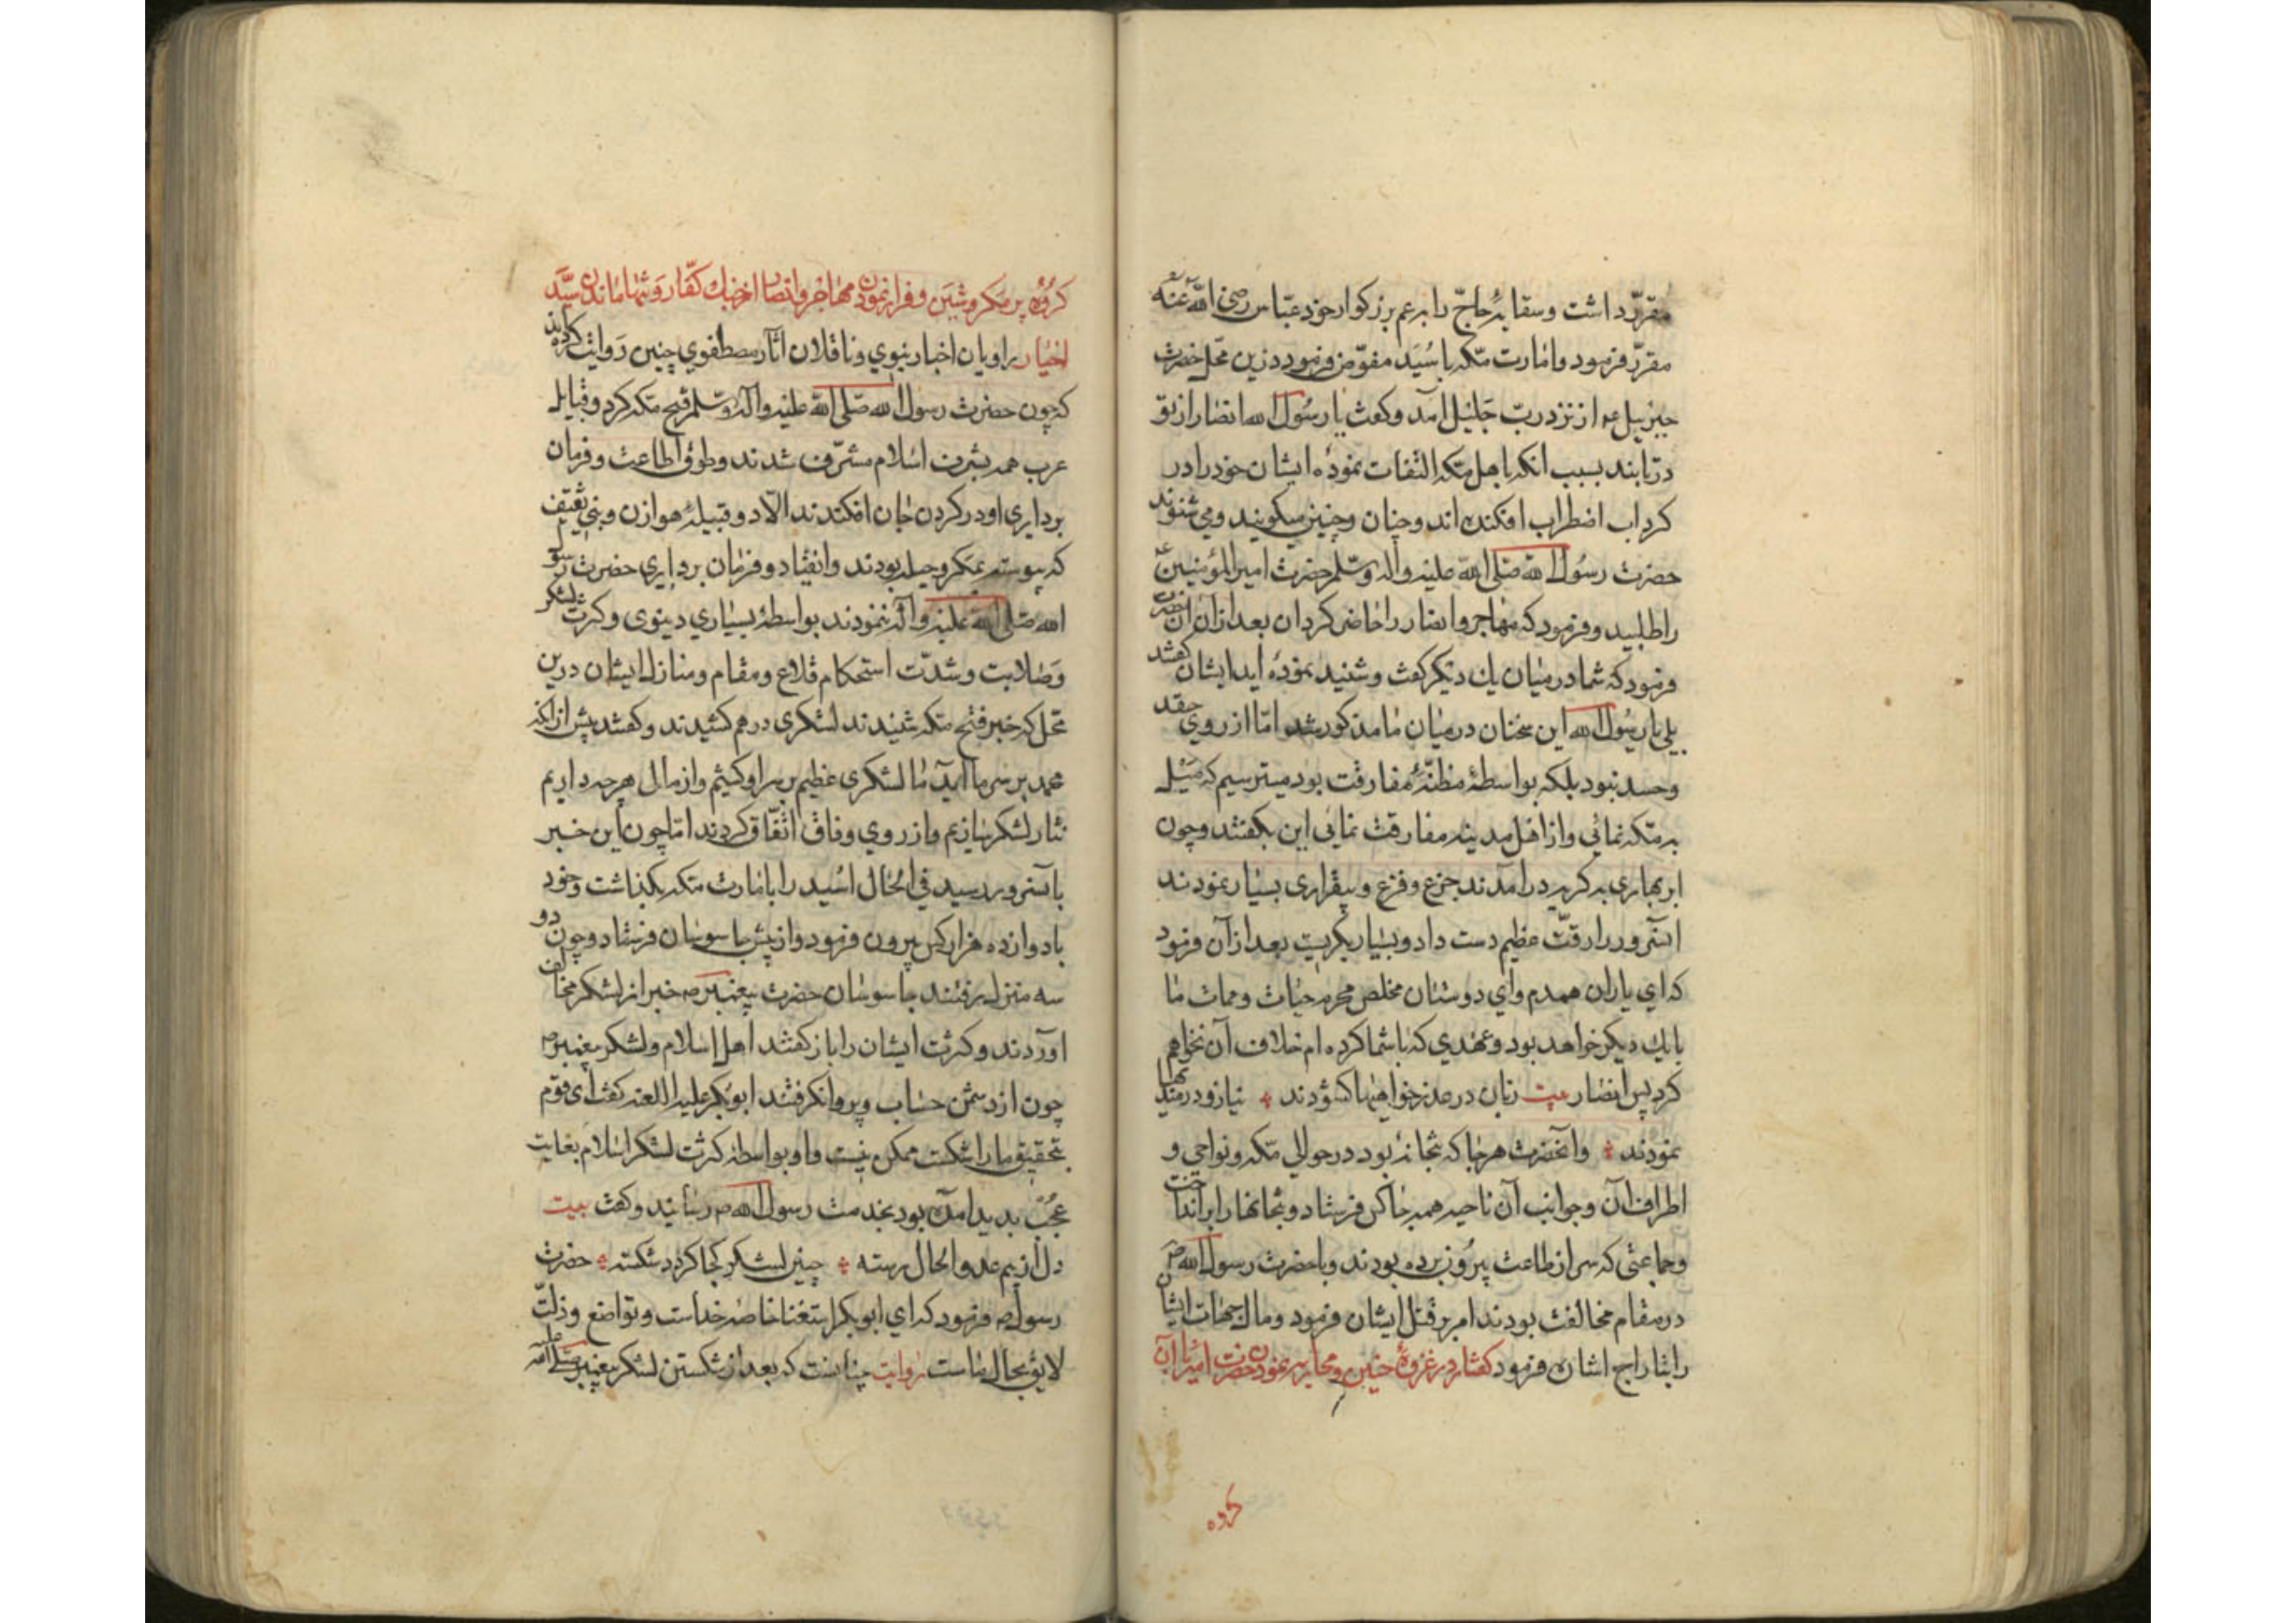 مقرّر داشت و سقایهٔ حاجّ را به عم بزرکوار خود عبّاس رضی اللّه عنه
مقرّر فرمود و امارت مکّه باسُید مفوّض فرمود درین محل حضرت
جبرئیل ع از نزد ربّ جلیل آمد و کفت یا رسُول الله انصار از تو
در تابند بسبب انکه باهل مکه التفات نمودهٔ ایشان خود را در
کرداب اضطراب افکنده اند و چنان و چنین میکویند و می شنوند
حضرت رسُول الله صلی الله علیه واله وسّلم حضرت امیر المؤمنین ع
را طلبید و فرمود که مهاجر و انصار را حاضر کردان بعد از آن انحضرت
فرمود که شما در میان یك دیکر کفت و شنید نموده اید ایشان کفتند
بلی یا رسُول الله این سخنان در میان ما مذکور شد امّا از روی حقد
و حسد نبود بلکه بواسطهٔ مظنّهٔ مفارقت بود میترسیم که میل
به مکه نمائی و از اهل مدینه مفارقت نمائی این بکفتند و چون
ابر بهاری به کریه در آمدند جزع و فزع و بیقراری بسیار نمودند
انسرور را رقّت عظیم دست داد و بسیار بکریست بعد از آن فرمود
که ای یاران همدم وای دوستان مخلص محرم حیات و ممات ما
با یك دیکر خواهد بود و عهدی که با شما کرده ام خلاف آن نخواهم
کرد پس انصار بیت زبان در عذر خواهیها کشودند نیاز و دردمندیها
نمودند وانحضرت هر جا که بتخانهٔ بود در حوالی مکه و نواحی و
اطراف آن و جوانب آن ناحیه همه جا کس فرستاد و بتخانها را برانداخت
و جماعتی که سر از طاعت بیرون برده بودند و با حضرت رسول الله ص
در مقام مخالفت بودند امر بر قتل ایشان فرمود و مال و جهات ایشان
را بتاراج اشان فرمود کفتار در غزوهٔ حنین و محاربه نمودن حضرت امیر با آن
کروه
کرُوه پر مکر و شین و فرار نمودن مهاجر و انصار از جنك کفّار و تنها ماندن سیّد
اخیار راویان اخبار نبوی و ناقلان اثار مصطفوی چنین روایت کرده اند
که چون حضرت رسول الله صلی الله علیه واله وسّلم فتح مکه کرد و قبایل
عرب همه بشرف اسلام مشرّف شدند و طوق اطاعت و فرمان
برداری او در کردن جان افکندند الّا دو قبیلهٔ هوازن و بنی ثقیف
که پیوسته بمکر و حیله بودند و انقیاد و فرمان برداری حضرت رسول
الله صلی الله علیه واله ننمودند بواسطهٔ بسیاری دنیوی و کثرت لشکر
و صلابت و شدّت استحکام قلاع و مقام و منازل ایشان درین
محل که خبر فتح مکه شنیدند لشکری در هم کشیدند و کفتند پیش از انکه
محمد بر سر ما آید ما لشکری عظیم بر سر او کشیم و از مال هر چه داریم
نثار لشکر سازیم و از روی وفاق اتّفاق کردند امّا چون این خبر
بانسرور رسید فی الحال اسُید را بامارت مکه بکذاشت و خود
با دوازده هزار کس بیرون فرمود و از پیش جاسوسان فرستاد و چون دو
سه منزل برفتند جاسوسان حضرت پیغمبر ص خبر از لشکر مخالف
اوردند و کثرت ایشان را باز کفتند اهل اسلام و لشکر پیغمبر ص
چون از دشمن حساب و پروا نکرفتند ابوبکر علیه اللعنه کفت ای قوم
بتحقیق ما را شکست ممکن نیست و او بواسطهٔ کثرت لشکر اسلام بغایت
عُجُب پدید امده بود بخدمت رسول الله ص رسانید و کفت بیت
دل از بیم عدو الحال رسته چنین لشکر کجا کردد شکسته حضرت
رسول ص فرمود که ای ابوبکر استغنا خاصهٔ خداست و تواضع و ذلّت
لایق بحال ماست روایت چنانست که بعد از شکستن لشکر پیغمبر صلی الله علیه